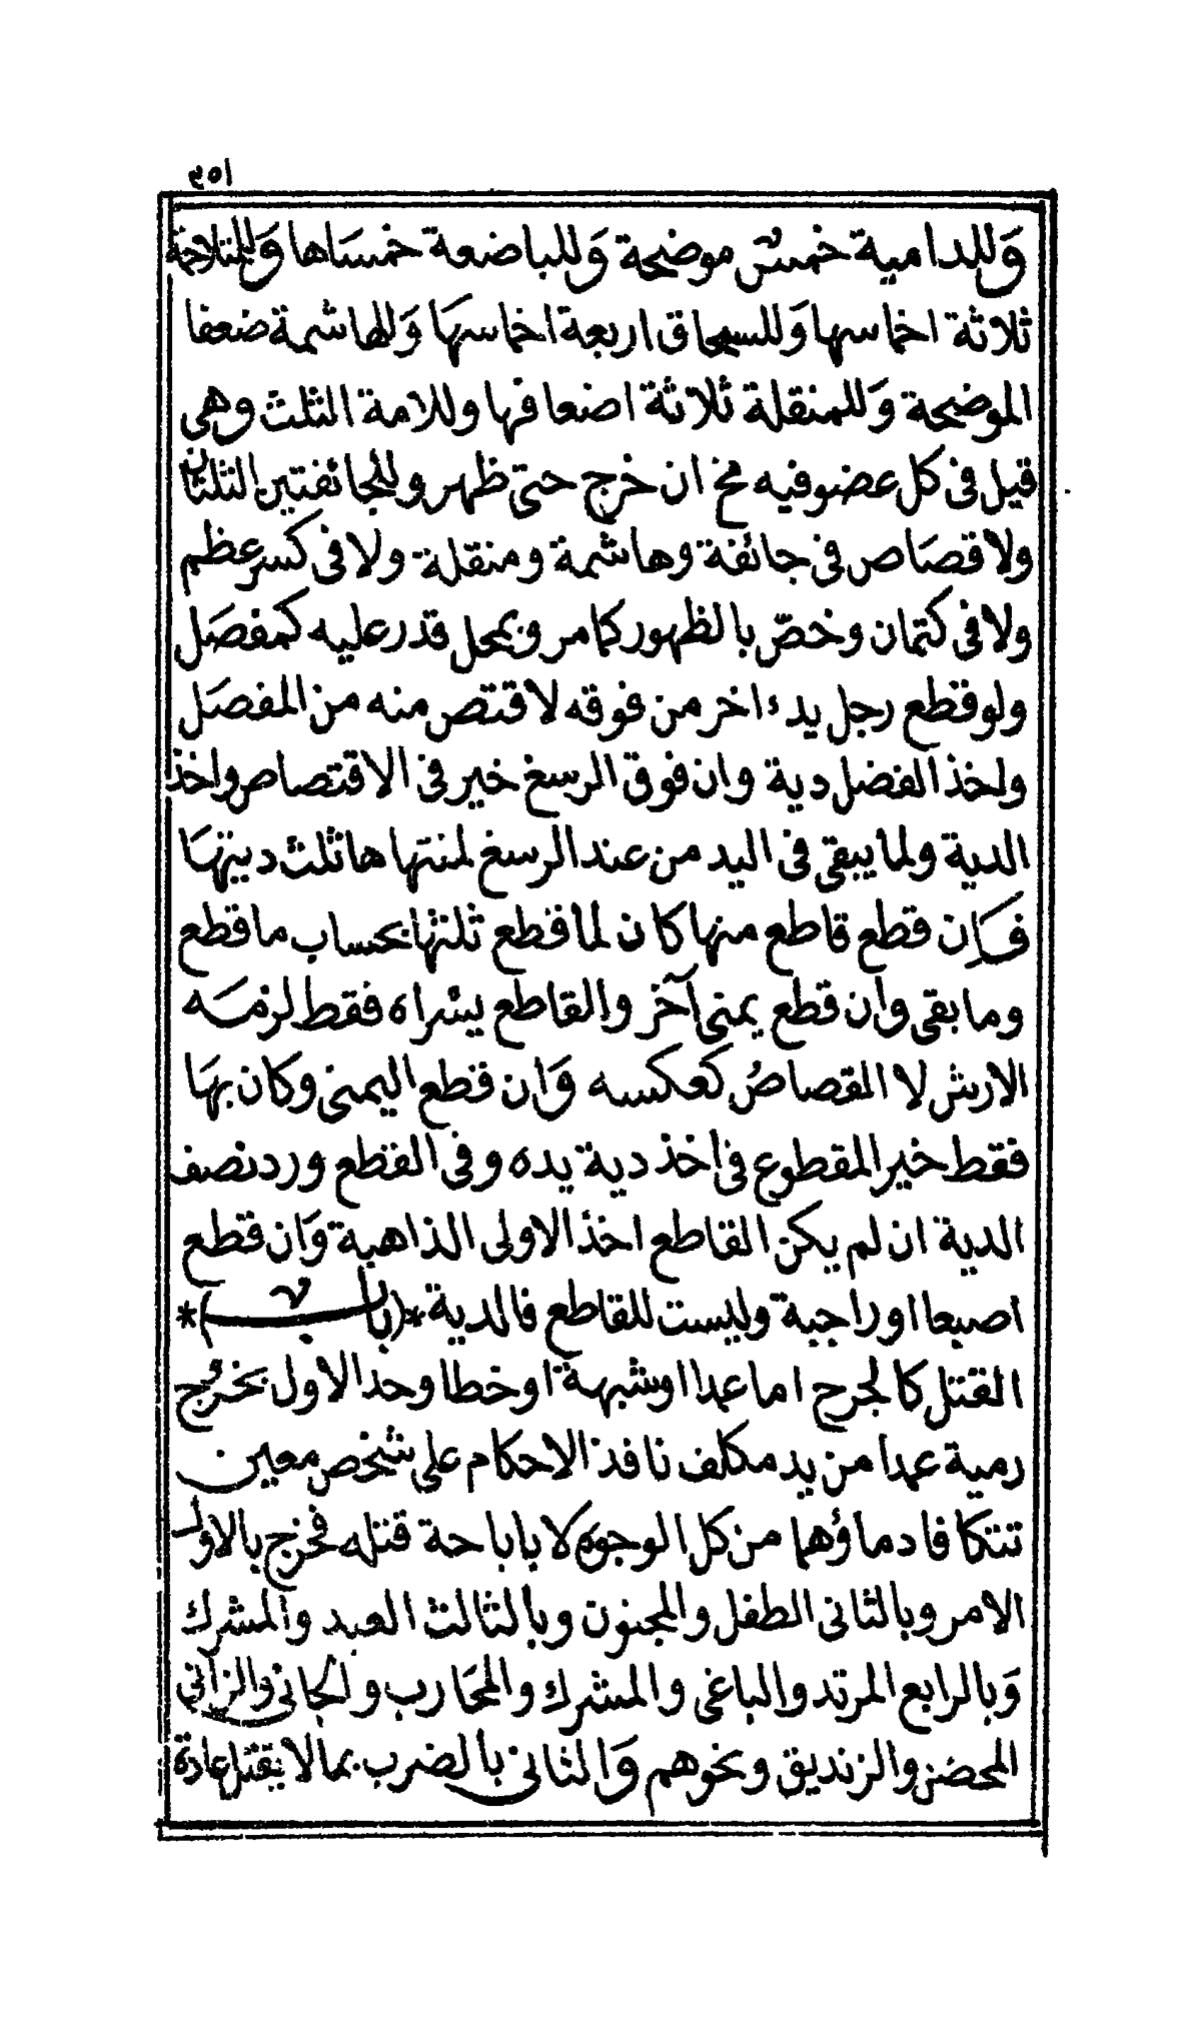 ٩٥١
وَللدامية خمسُ موضحة وَللباضعة خمسَاها وَللمتلاحمة
ثلاثة اخماسها وَللسمحاق اربعة اخماسهَا وَللهاشمة ضعفا
الموضحة وَللمنقلة ثلاثة اضعافها وللامة الثلث وهى
قيل فى كل عضو فيه مخ ان خرج حتى ظهر وللجائفتين الثلثان
ولا قصَاص فى جائفة وهاشمة ومنقلة ولا فى كسر عظم
ولا فى كتمان وخصّ بالظهور كما مر وبمحل قدر عليه كمفصَل
ولو قطع رجل يدء اخر من فوقه لاقتص منه من المفصَل
ولخذ الفضل دية وان فوق الرسغ خير فى الاقتصاص واخذ
الدية ولما يبقى فى اليد من عند الرسغ لمنتهاها ثلث ديتهَا
فكان قطع قاطع منها كان لما قطع ثلثها بحساب ما قطع
وما بقى وان قطع يمنى آخر والقاطع يسراه فقط لزمَه
الارش لا القصاصُ كعكسه وَان قطع اليمنى وكان بهَا
فقط خير المقطوع فى اخذ دية يده وفى القطع ورد نصف
الدية ان لم يكن القاطع اخذ الاولى الذاهبة وَان قطع
اصبعا او راجبة وليست للقاطع فالدية *(باب)*
القتل كالجرح اما عمدا او شبهة او خطا وحد الاول بخروج
رمية عمدا من يد مكلف نافذ الاحكام على شخص معين
تتكافا دماؤهما من كل الوجوه لا باباحة قتله فخرج بالاول
الامر وبالثانى الطفل والمجنون وبالثالث العبد والمشرك
وَبالرابع المرتد والباغى والمشرك والمحَارب والجانى والزانى
المحصن والزنديق ونحوهم وَالثانى بالضرب بما لا يقتل عادة